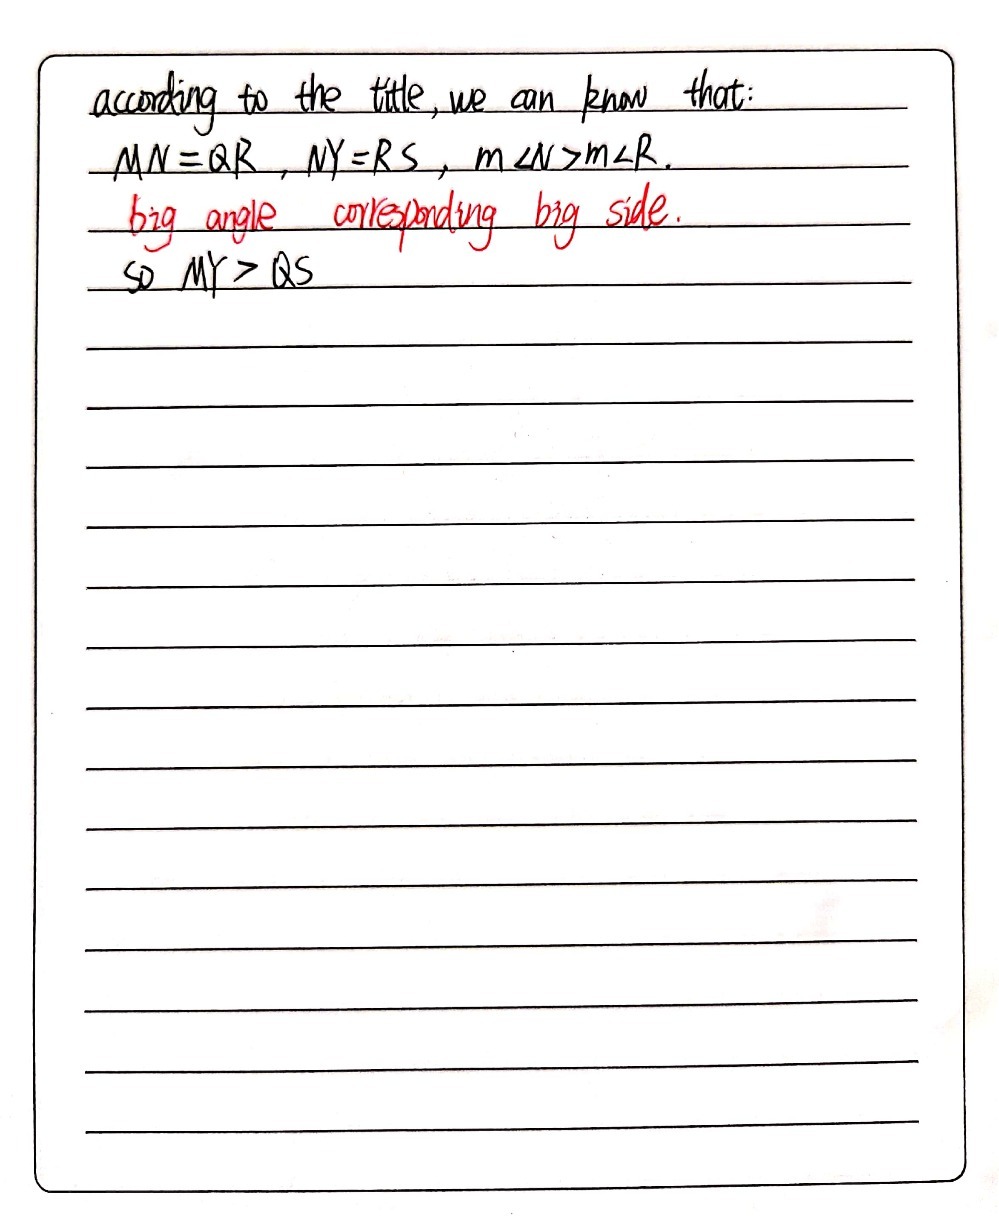 according to the title, we can know that:
MN=QR, NY=RS, m∠N>m∠R.
big angle corresponding big side.
so MY > QS